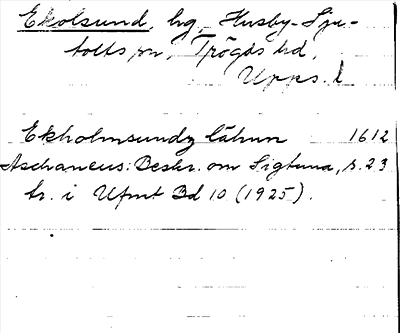 Ekolsund, hg, Husby-Sju-
tolfts sn, Trögds hd,
Upps. l
Ekholmsundz låhnn 1612
Aschaneus: Beskr. om Sigtuna, s. 23
tr. i Ufmt Bd 10 (1925).